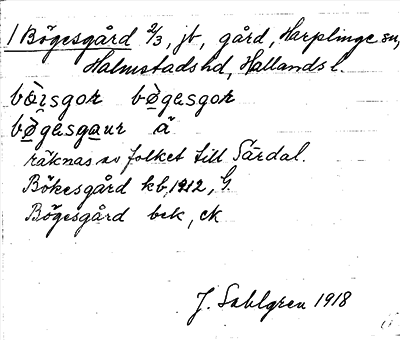 1 Bögesgård 2/3, jb, gård, Harplinge sn,
Halmstads hd, Hallands l.
bòisgoʀ bø̀gesgoʀ
bø̀gesgauʀ ä
räknas av folket till Särdal.
Bökesgård kb, 1212, G.
Bögesgård bek, ck
J. Sahlgren 1918